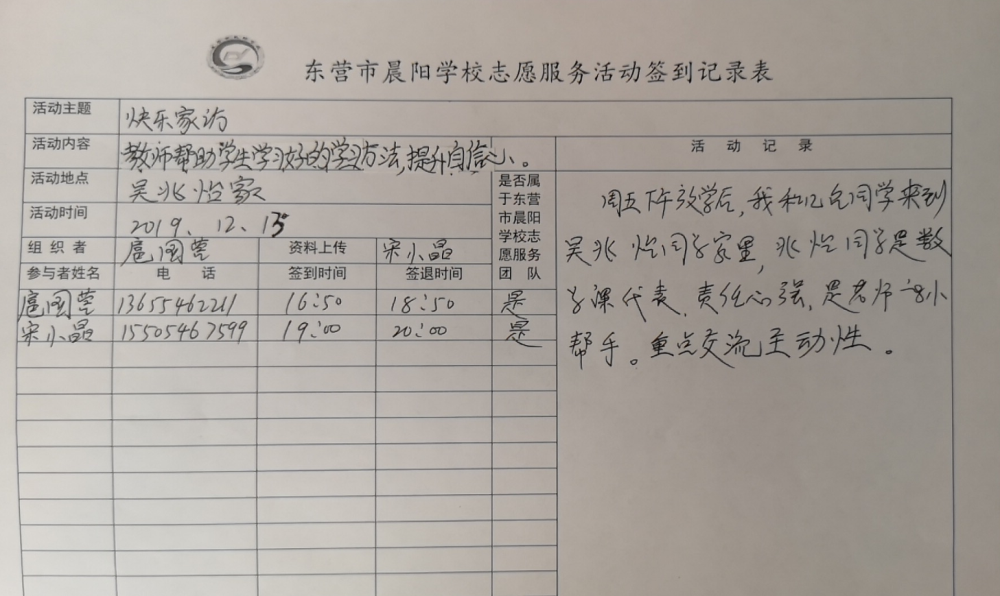 东营市晨阳学校志愿服务活动签到记录表
活动主题 快乐家访
活动内容 教师帮助学生学习好的学习方法,提升自信心。
活动地点 吴兆怡家
活动时间 2019.12.13
组织者 扈国莹 资料上传 宋小晶
参与者姓名 电话 签到时间 签退时间
是否属
于东营
市晨阳
学校志
愿服务
团队
扈国莹 13655462211 16:50 18:50 是
宋小晶 15505467599 19:00 20:00 是
活动记录
周五下午放学后,我和 同学来到
吴兆怡同学家里,兆怡同学是数
学课代表,责任心强,是老师 小
帮手。重点交流主动性。